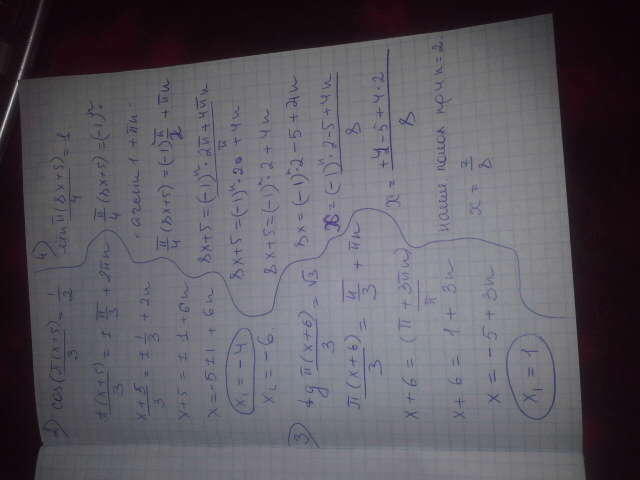 2) cos(π(x+5))/3 = 1/2
π(x+5)/3 = ± π/3 + 2πn
x+5/3 = ± 1/3 + 2n
x+5 = ± 1 + 6n
x = -5 ± 1 + 6n
x₁ = -4
x₂ = -6
3) tg π(x+6)/3 = √3
π(x+6)/3 = π/3 + πn
x+6 = (π+3πn)/π
x+6 = 1 + 3n
x = -5 + 3n
x₁ = 1
4) sin π(8x+5)/4 = 1
π/4 (8x+5) = (-1)ⁿ ·
· arcsin 1 + πn
π/4 (8x+5) = (-1) π/2 + πn
8x+5 = (-1)ⁿ · 2π + 4πn/π
8x+5 = (-1)ⁿ · 2 + 4n
8x+5 = (-1)ⁿ · 2 + 4n
8x = (-1)ⁿ · 2 - 5 + 4n
x = (-1)ⁿ · 2 - 5 + 4n/8
x = -5 + 4 · 2/8
при n = 2
x = 7/8